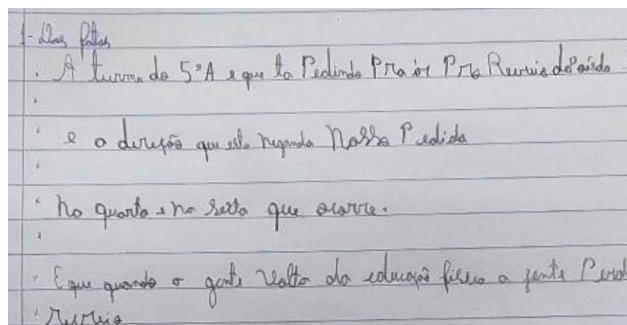 1- Das fatos
. A turma do 5ºA e que ta Pedindo Pra ir Pro Recreio
e a direção que esta negando Nosso Pedido
na quarta e na sexta que ocorre.
E que quando a gente Volta da educação fisica a gente Perd
recreio